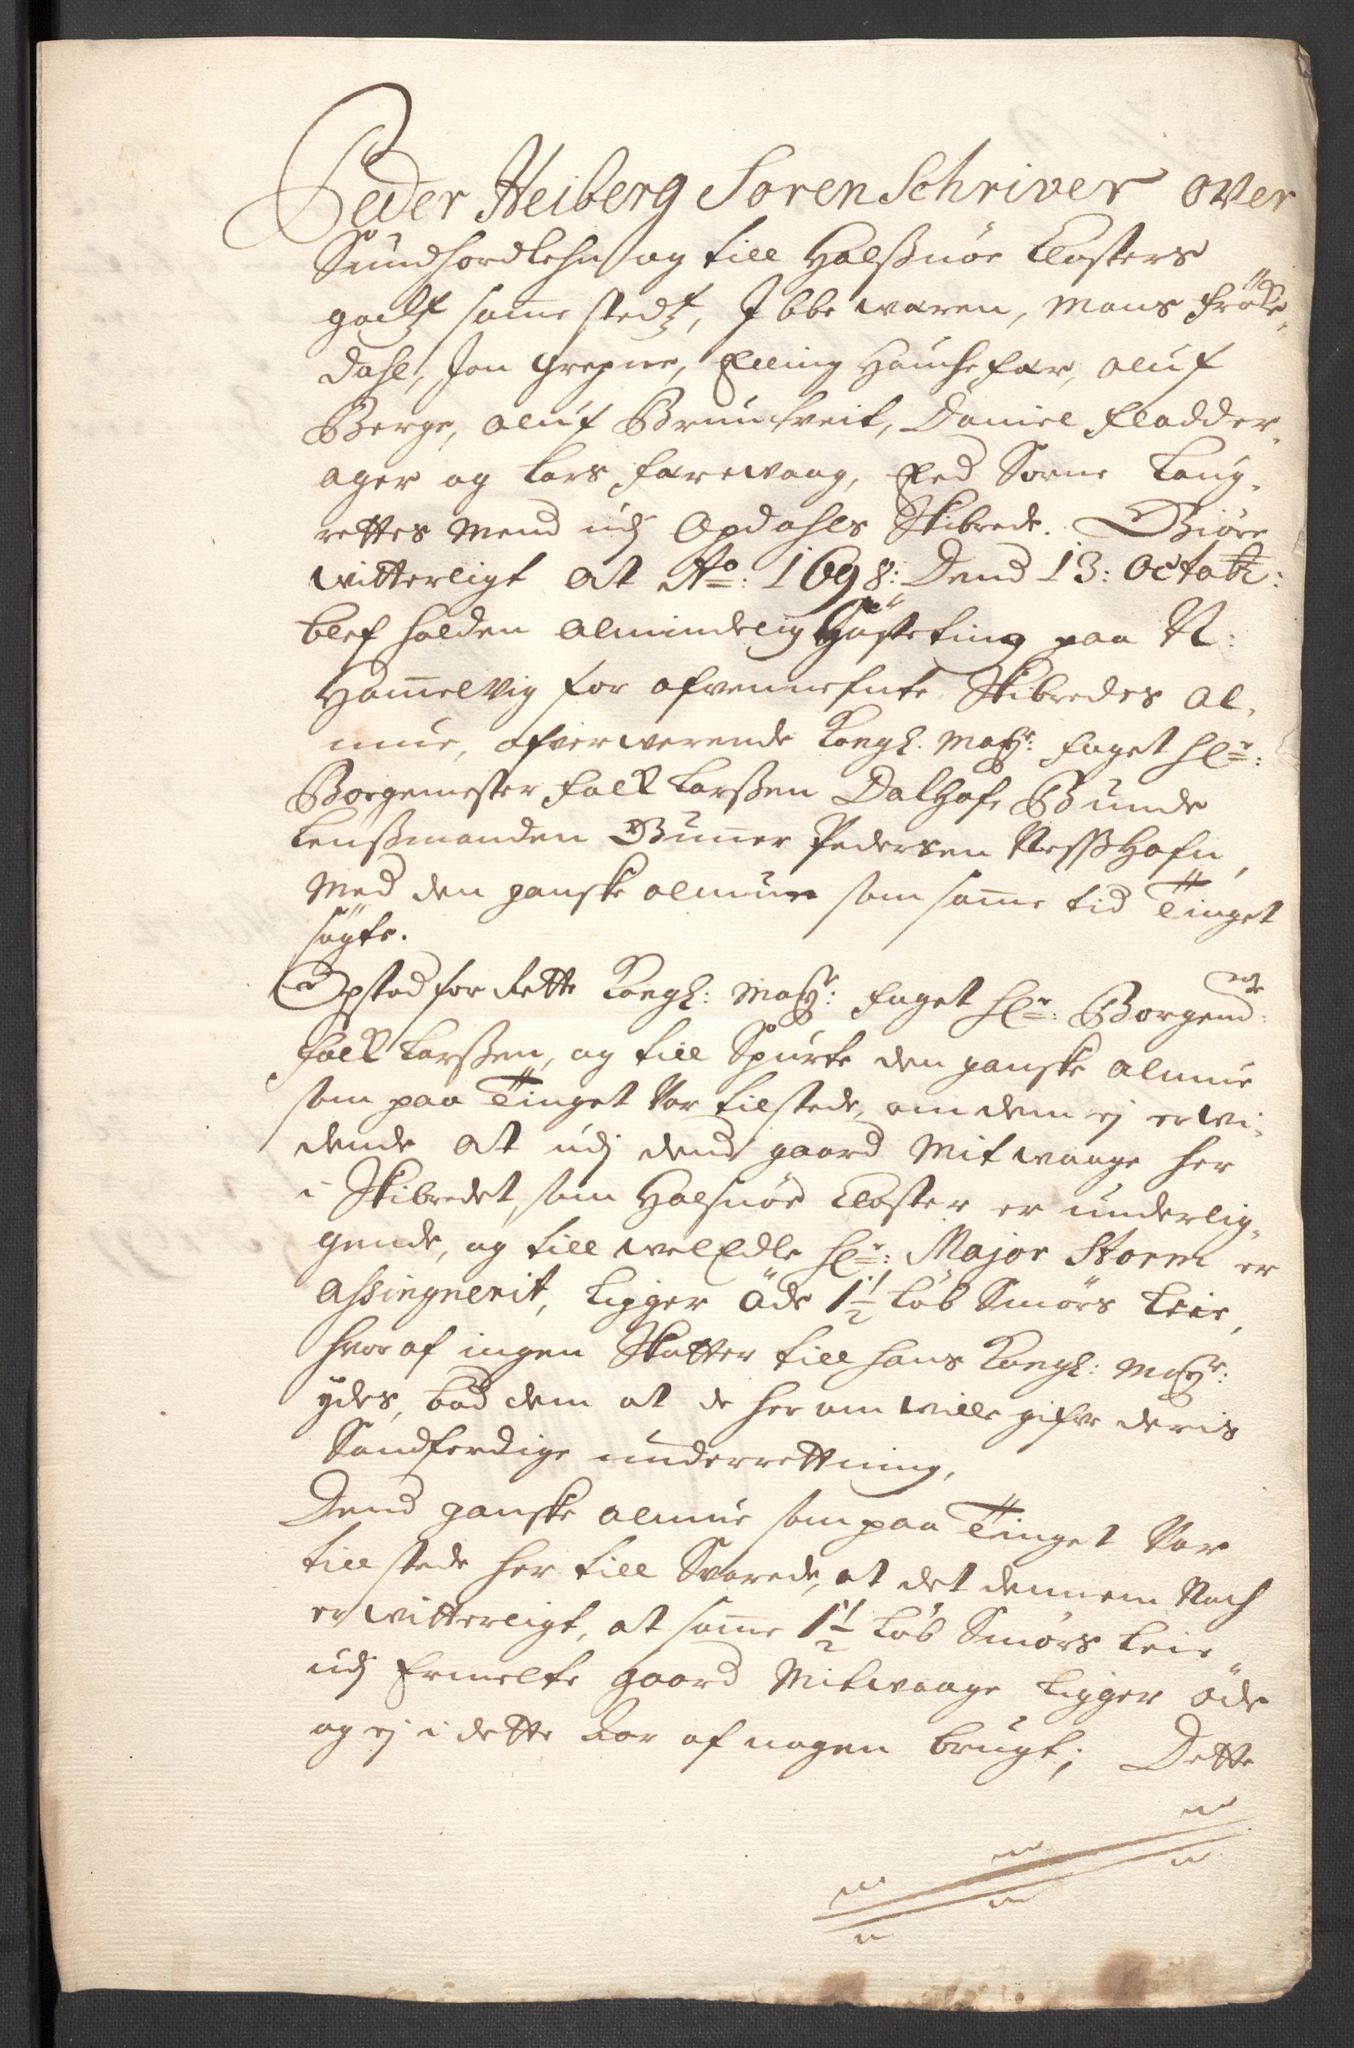 Peder Heiberg Soren Schriver over
Sundhordlehn og till Halssnøe Closters
godtz samme stedtz, Ibbe waren, Mons Frøke,
dahl, Jon Grepne, Elling Hauchefær, Oluf
Berge, Oluf Bruntveit, Daniel Fladder,
ager og Lars Farewaag, Eed Sorne Laug,
rettes Mend udj Opdahls Skibrede. Giøre
witterligt at Ao: 1698: Dend 13: Octobr:
blef holden almindelig Høsteting paa N:
Hammelvig for ofvennefnte Skibredes al,
mue, ofverwerende Kongl. Maytz. Foget Hr:
Borgemester Falk Larssen Dalhof, Bunde
Lenssmanden Gunner Pedersen Nessshafn,
Med den ganske almue som samme tid Tinget
søgte.
Opstod for Rette Kongl: Maytz: Foget Hr: Borgemdr
Falk Larssen, og till Spurte den ganske almue
som paa Tinget Var tilstede, om dem ej er wi,
dende at udj dend gaard Mitwaage her
i Skibredet, som Halsnøe Closter er underlig,
gende, og till welEdle Hr: Major Storm er
Assingnerit, Ligger Öde 1½ Løb Smørs Leie,
hvor af ingen Skatter till hans Kongl: Maytz:
ydes, bad dem at de her om wille gifve deris
Sandferdige underrettning,
Dend ganske almue som paa Tinget Var
till stede her till Svarede, at det dennem Noch
er witterligt, at samme 1½ Løb Smørs Leie
udj Ermelte gaord Mitwaage Ligger öde
og ej i dette Aar af nogen brugt; Dette